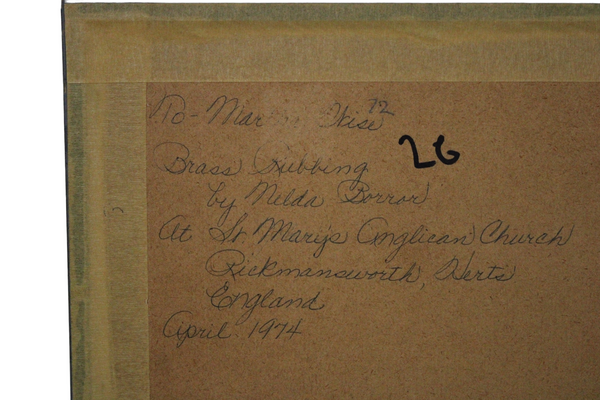 To - Mar Wise 72
26
Brass Rubbing
by Nelda Borror
At St Mary's Anglican Church
Rickmansworth, Herts
England
April 1974